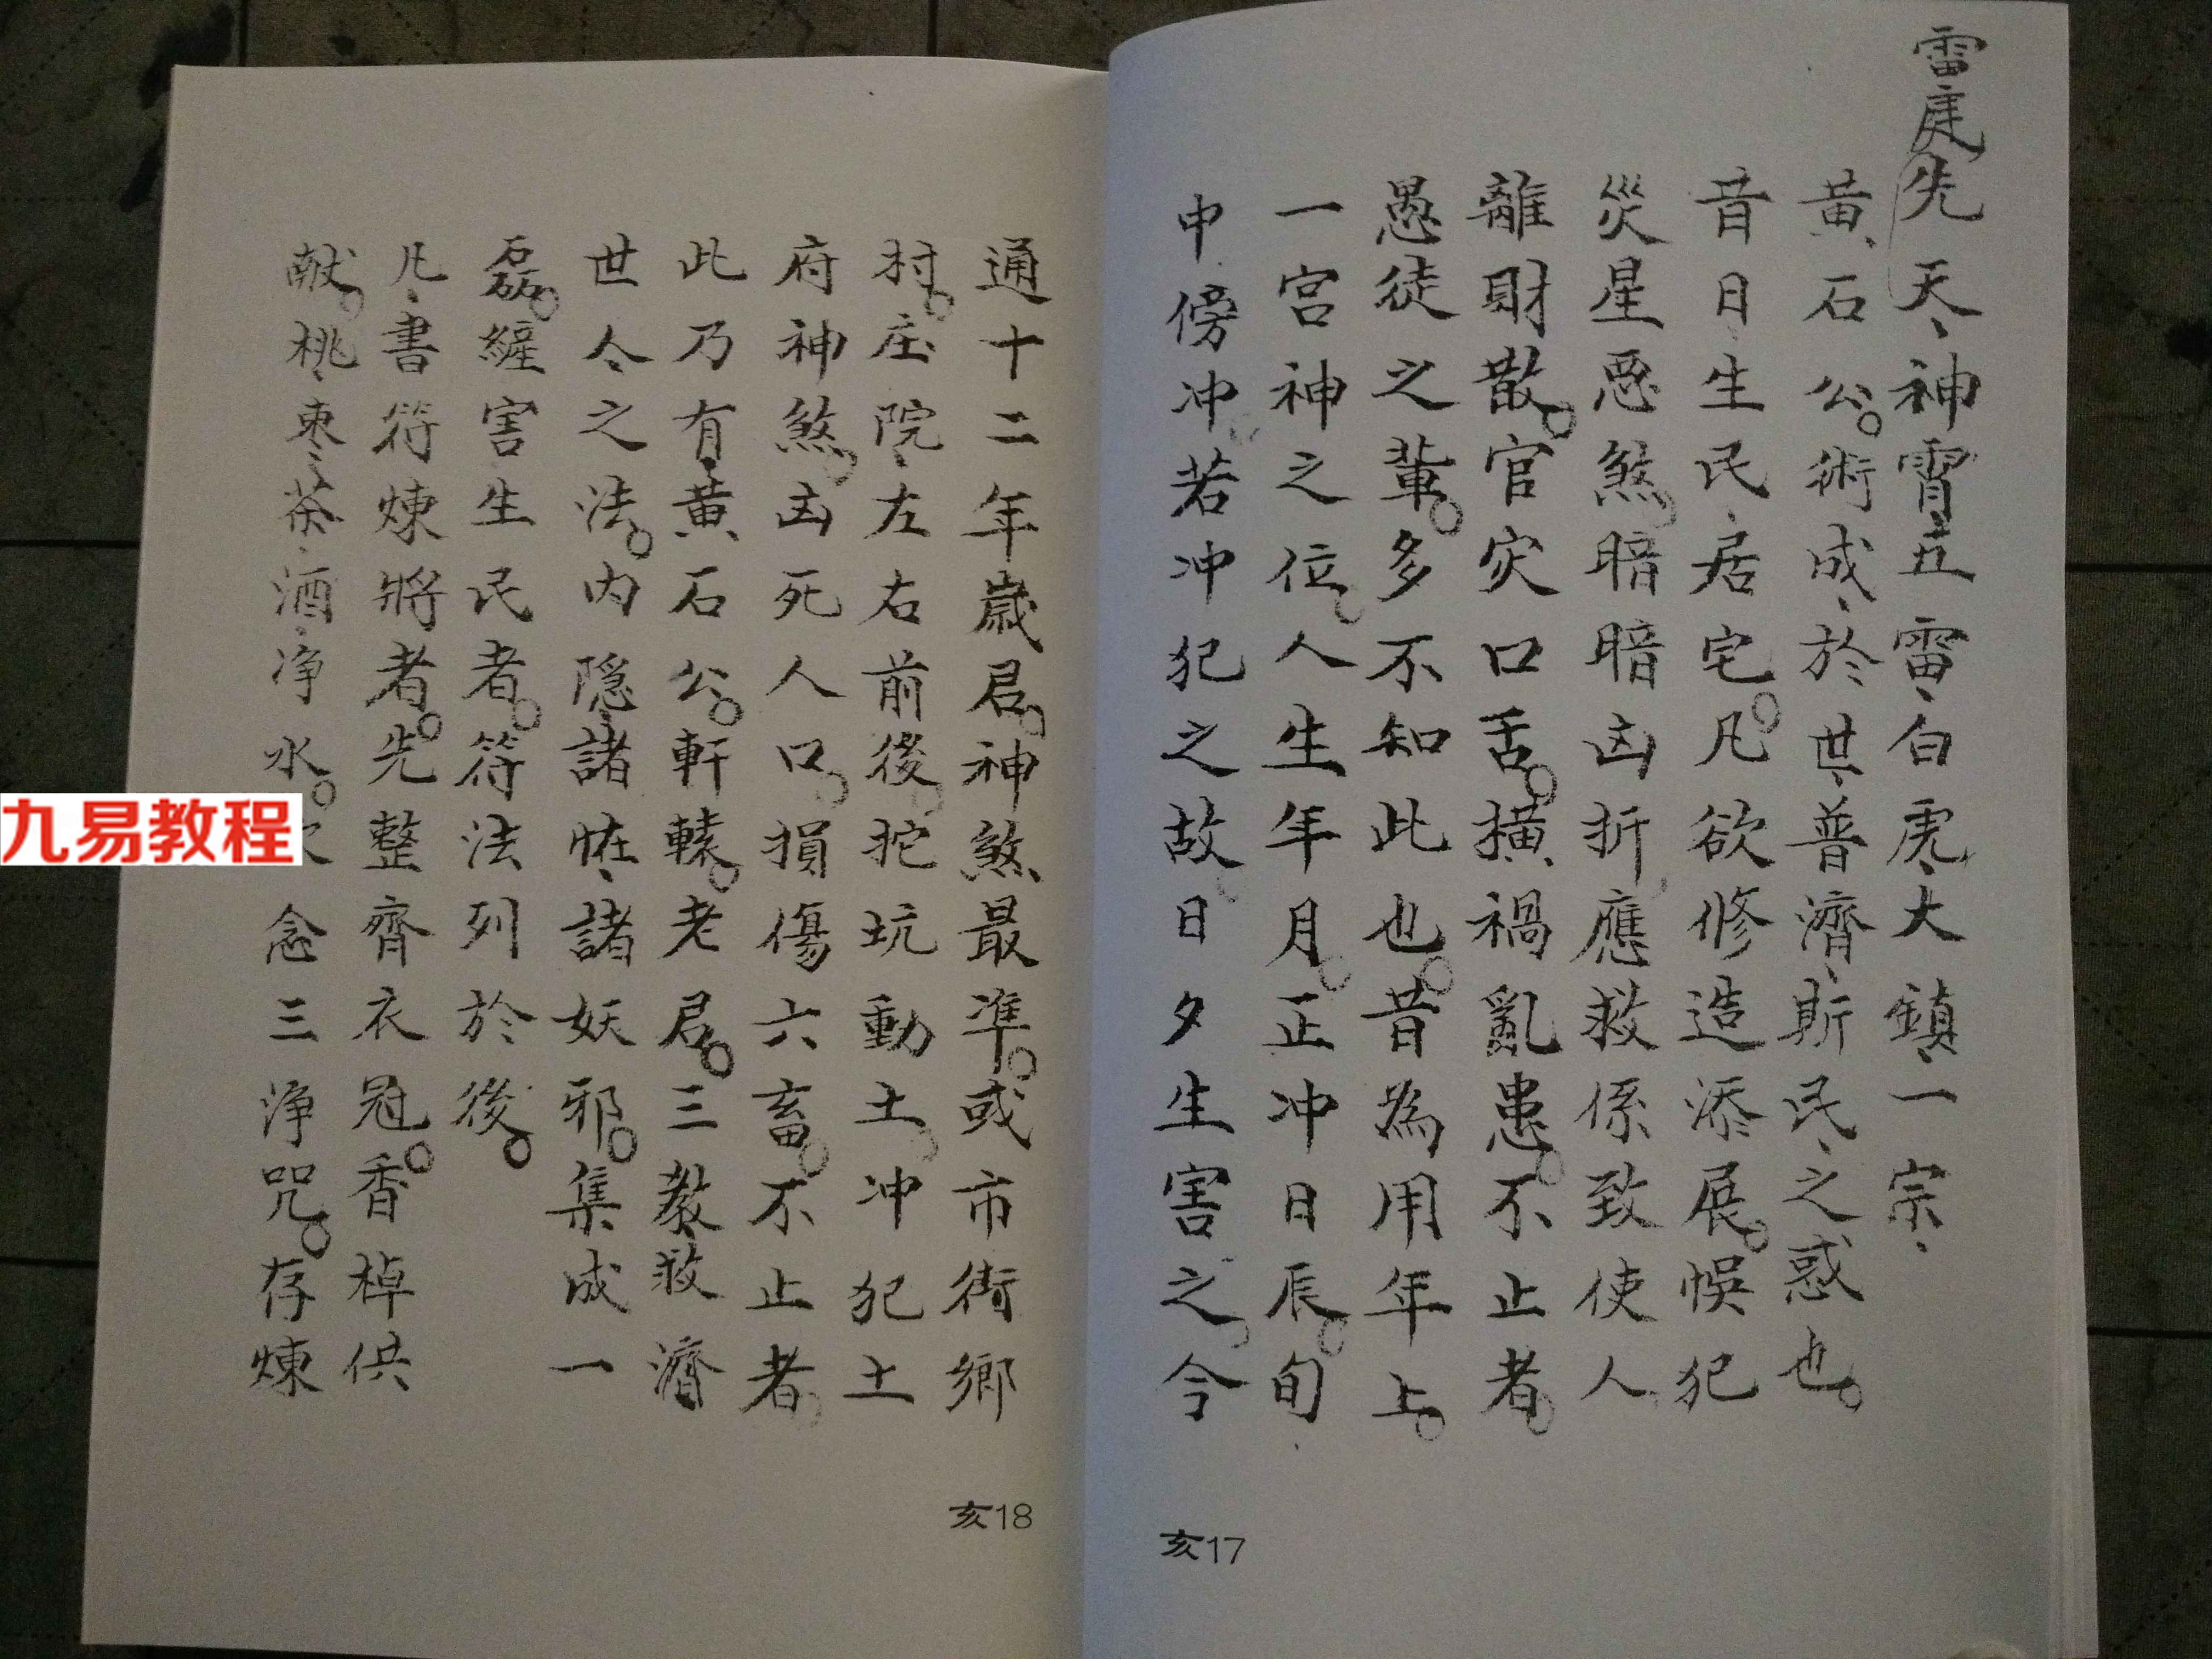 雷霆先天神霄五雷白虎大鎮一宗
黃石公術成於世普濟斯民之惑也
昔日生民居宅凡欲修造添展悞犯
災星惡煞暗暗凶折應救係致使人
離財散官灾口舌横禍亂患不止者
愚徒之輩多不知此也昔為用年上
一宮神之位人生年月正冲日辰旬
中傍冲若冲犯之故日夕生害之今
亥17
通十二年歲君神煞最準或市街鄉
村庄院左右前後挖坑動土冲犯土
府神煞凶死人口損傷六畜不止者
此乃有黃石公軒轅老君三教救濟
世人之法内隐諸恠諸妖邪集成一
磊纏害生民者符法列於後
凡書符煉將者先整齊衣冠香棹供
献桃枣茶酒净水念三净咒存煉
亥18
九易教程